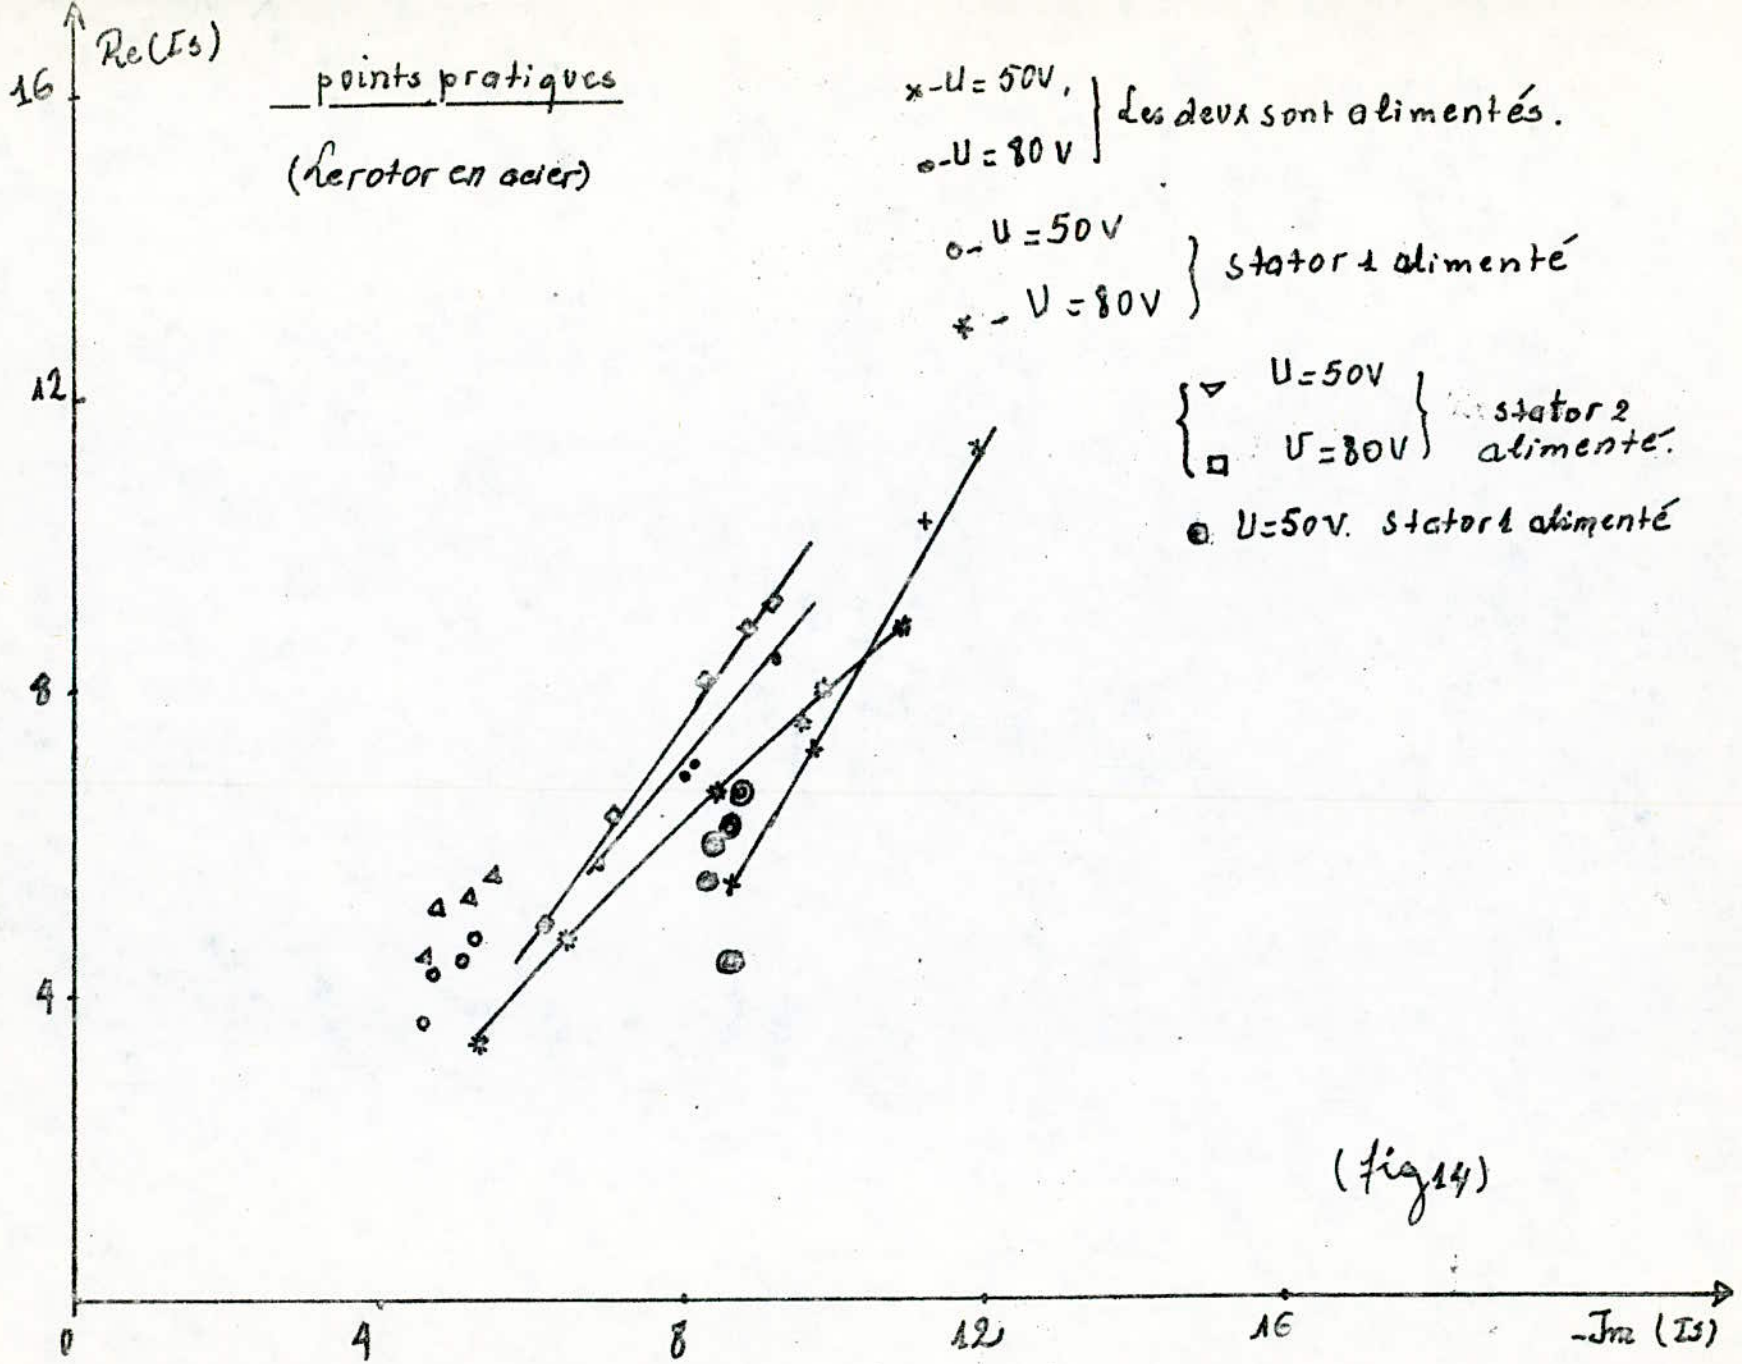 Re(Is)
points pratiques
(Le rotor en acier)
x-U=50V,
Les deux sont alimentés.
o-U=80V
o-U=50V
stator 1 alimenté
*-U=80V
U=50V
stator 2
U=80V
alimenté.
U=50V. stator 1 alimenté
16
12
8
4
(fig 14)
0 4 8 12 16 -Im (Is)